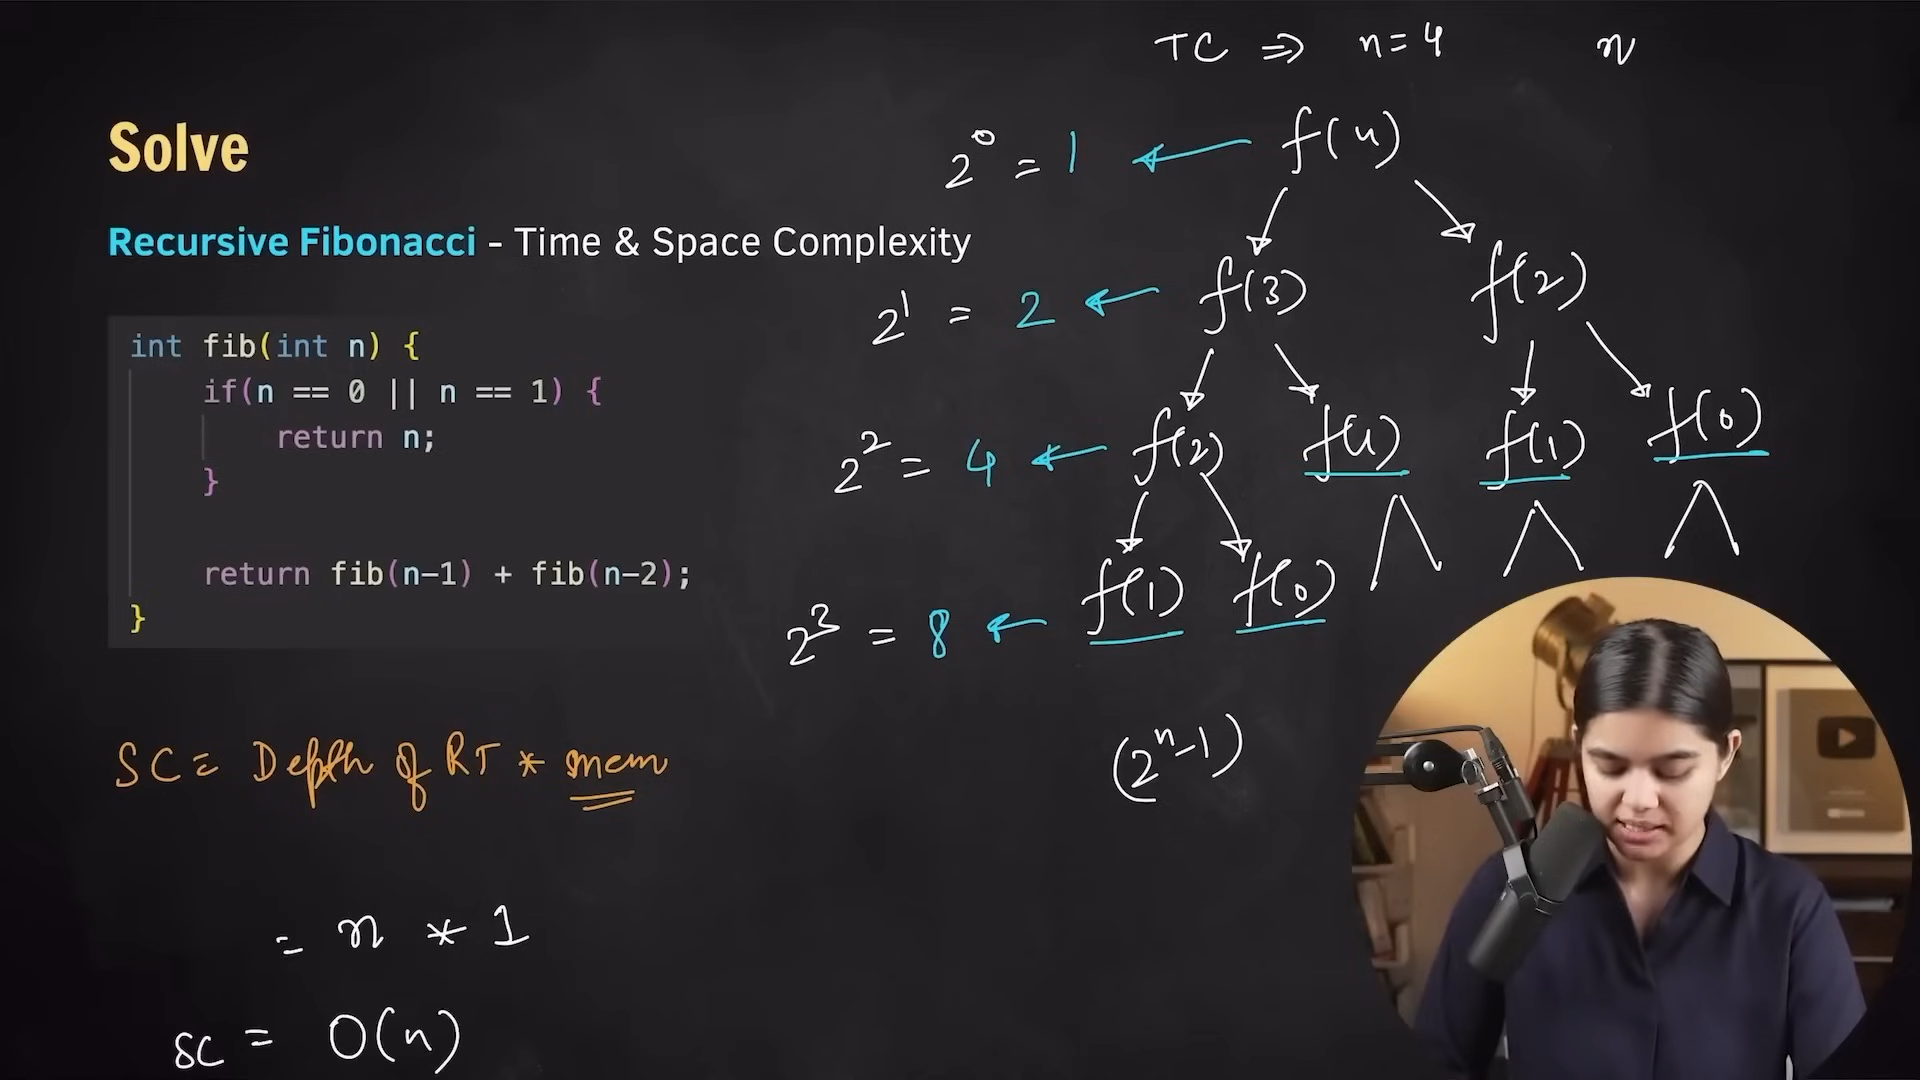 TC ⇒ n=4 n
Solve
Recursive Fibonacci - Time & Space Complexity
int fib(int n) {
if(n == 0 || n == 1) {
return n;
}
return fib(n-1) + fib(n-2);
}
SC = Depth of RT * mem
= n * 1
SC = O(n)
2⁰ = 1 ← f(4)
2¹ = 2 ← f(3) f(2)
2² = 4 ← f(2) f(1) f(1) f(0)
2³ = 8 ← f(1) f(0)
(2ⁿ-1)